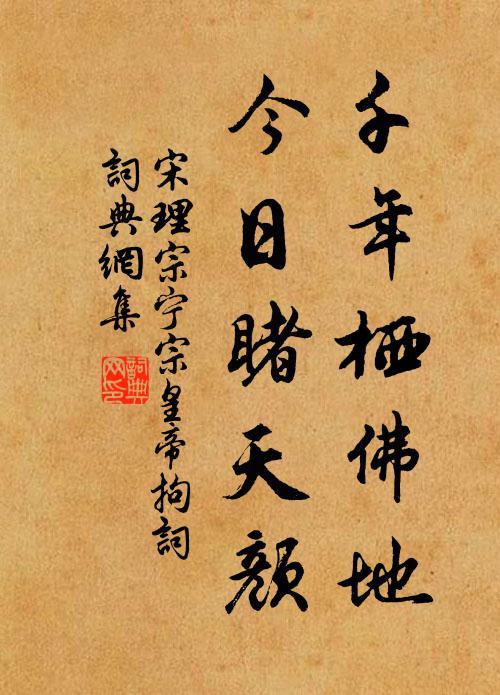 千年栖佛地
今日睹天颜
宋理宗宁宗皇帝拘詞
詞典網集
詞典网印